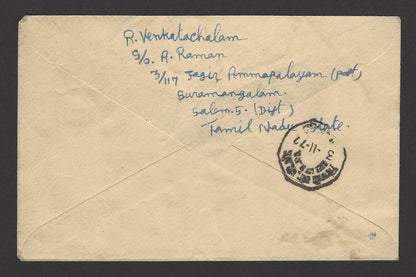 R. Venkatachalam
S/o. A. Raman
3/117 Jagir Ammapalayam (post)
Suramangalam.
Salem.5. (Dist)
Tamil Nadu State.
-11-72